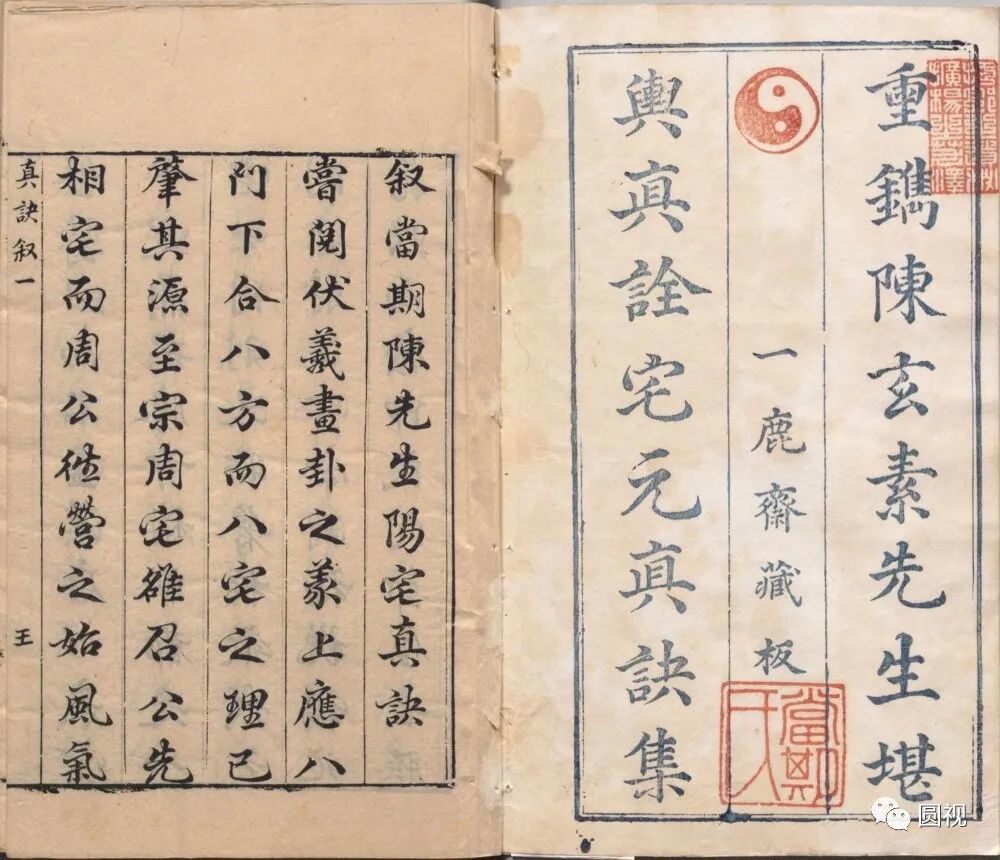 重鐫陳玄素先生堪
一鹿齋藏板
輿眞詮宅元眞訣集
叙當期陳先生陽宅真訣
嘗閱伏羲畫卦之義上應八
門下合八方而八宅之理已
肇其源至宗周宅雒召公先
相宅而周公徃營之始風氣
真訣叙一
王
圆视